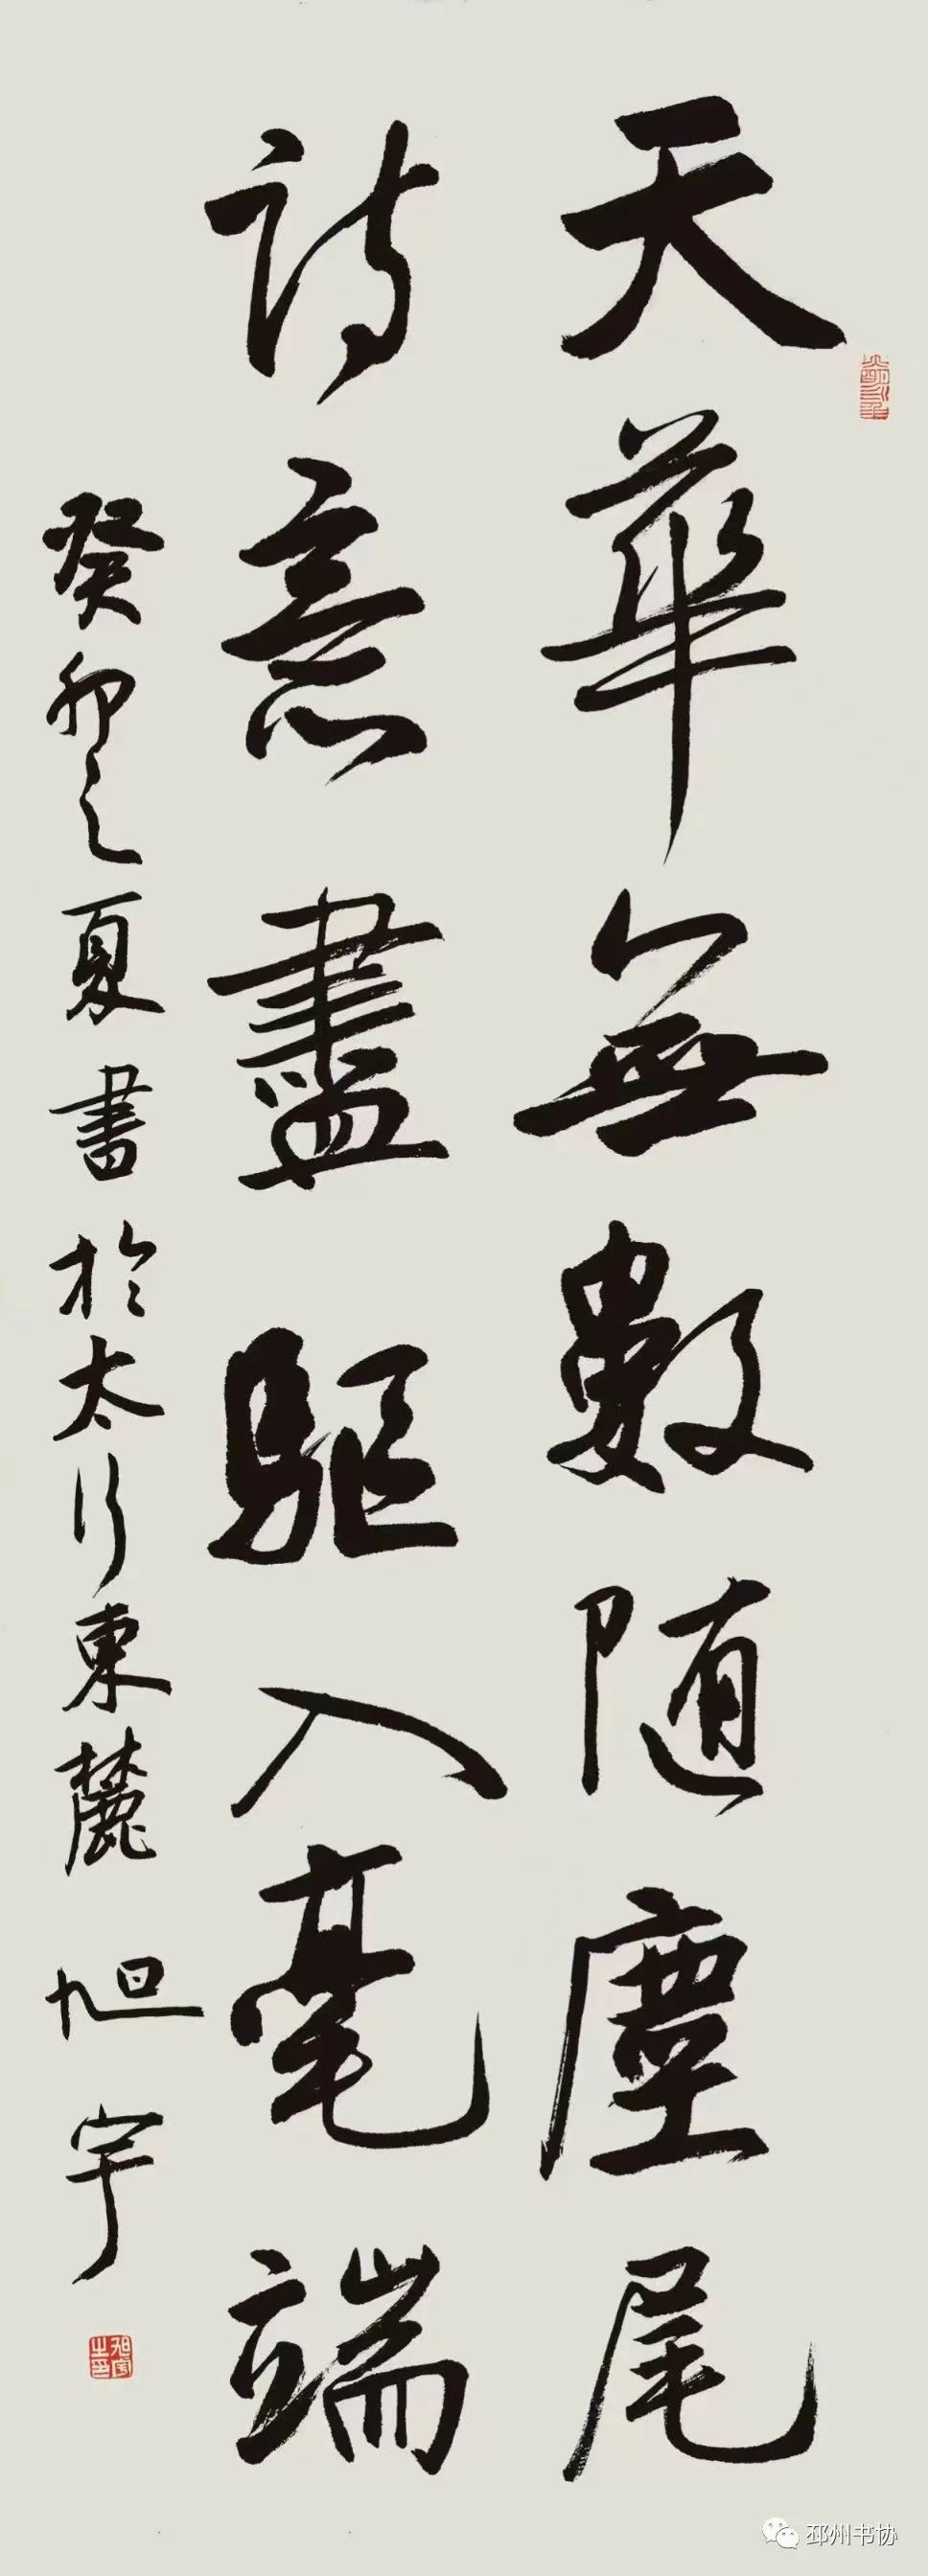 天華無數随塵尾
詩意盡驅入毫端
癸卯之夏書於太行東麓 旭宇
旭宇之印
邳州书协